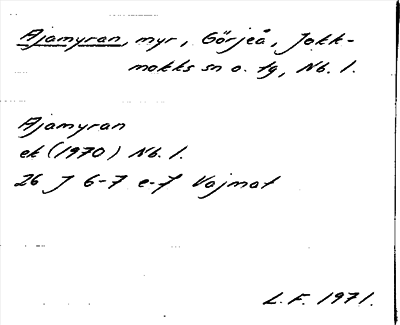 Ajamyran, myr, Görjeå, Jokk-
mokks sn o. tg, Nb. l.
Ajamyran
ek (1970) Nb. l.
26 J 6-7 e-f Vajmat
L.F. 1971.